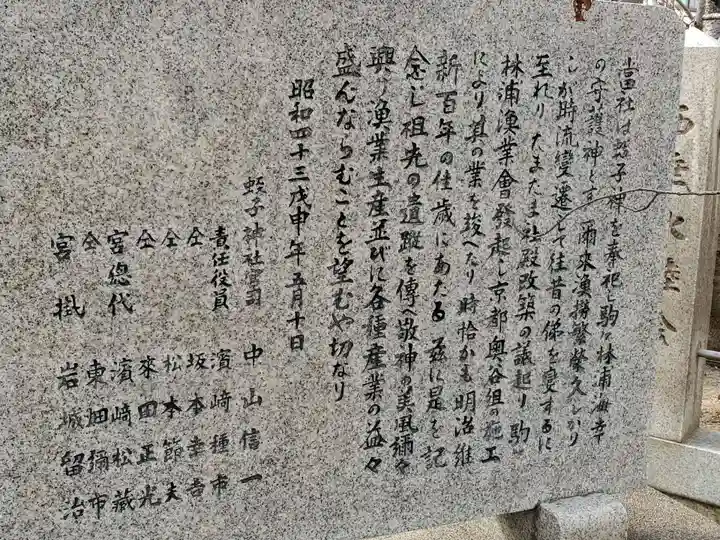 當社は蛭子神を奉祀し駒ケ林浦海幸
の守護神とす 爾來漁撈繁榮久しかり
しが時流變遷して往昔の俤を變するに
至れり たまたま社殿改築の議起り駒ケ
林浦漁業會發起し京都奥谷組の施工
により其の業を竣へたり 時恰かも明治維
新百年の佳歳にあたる 茲に是を記
念し祖先の遺蹤を傳へ敬神の美風彌々
興り漁業生産並びに各種産業の益々
盛んならむことを望むや切なり
昭和四十三戊申年五月十日
蛭子神社宮司 中山信一
責任役員 濱崎種市
仝 坂本幸吉
仝 松本節夫
仝 來田正光
宮總代 濱崎松藏
仝 東畑彌市
宮掛 岩城留治